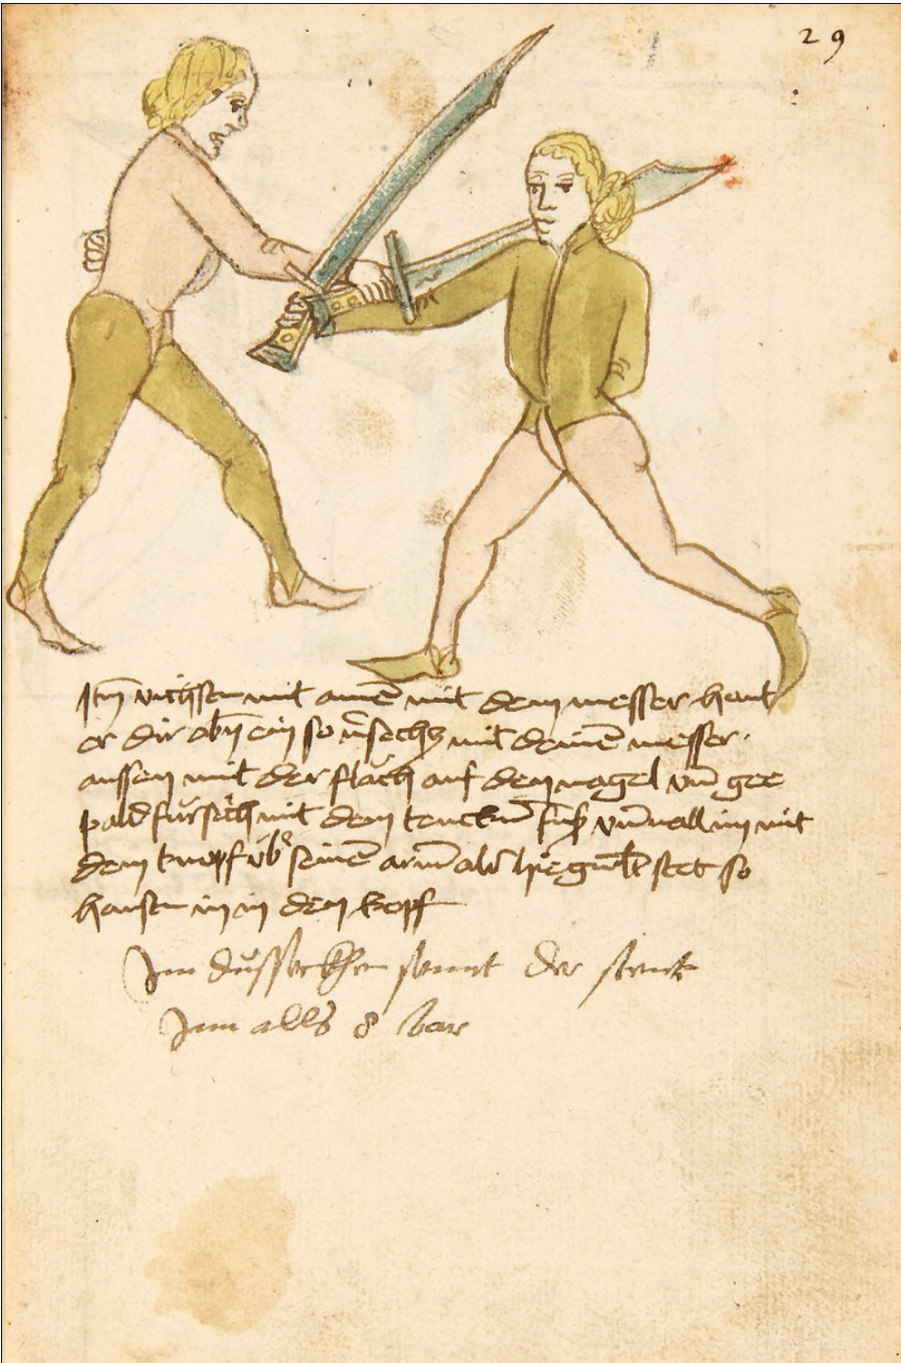 29
Itm vichstu mit ainē mit dem messer haut
er dir obñ ein so v̄setz mit deinē messer
aussen mit der flach auf den nagel vn̄ gee
pald fursich mit dem tencken fuß vn̄ vall im mit
dem knopf vb̓ seinē arm als hie gmalt stet so
haustu in in den kopf
Im dussecken sennt der stuck
Inn alls 8 bar